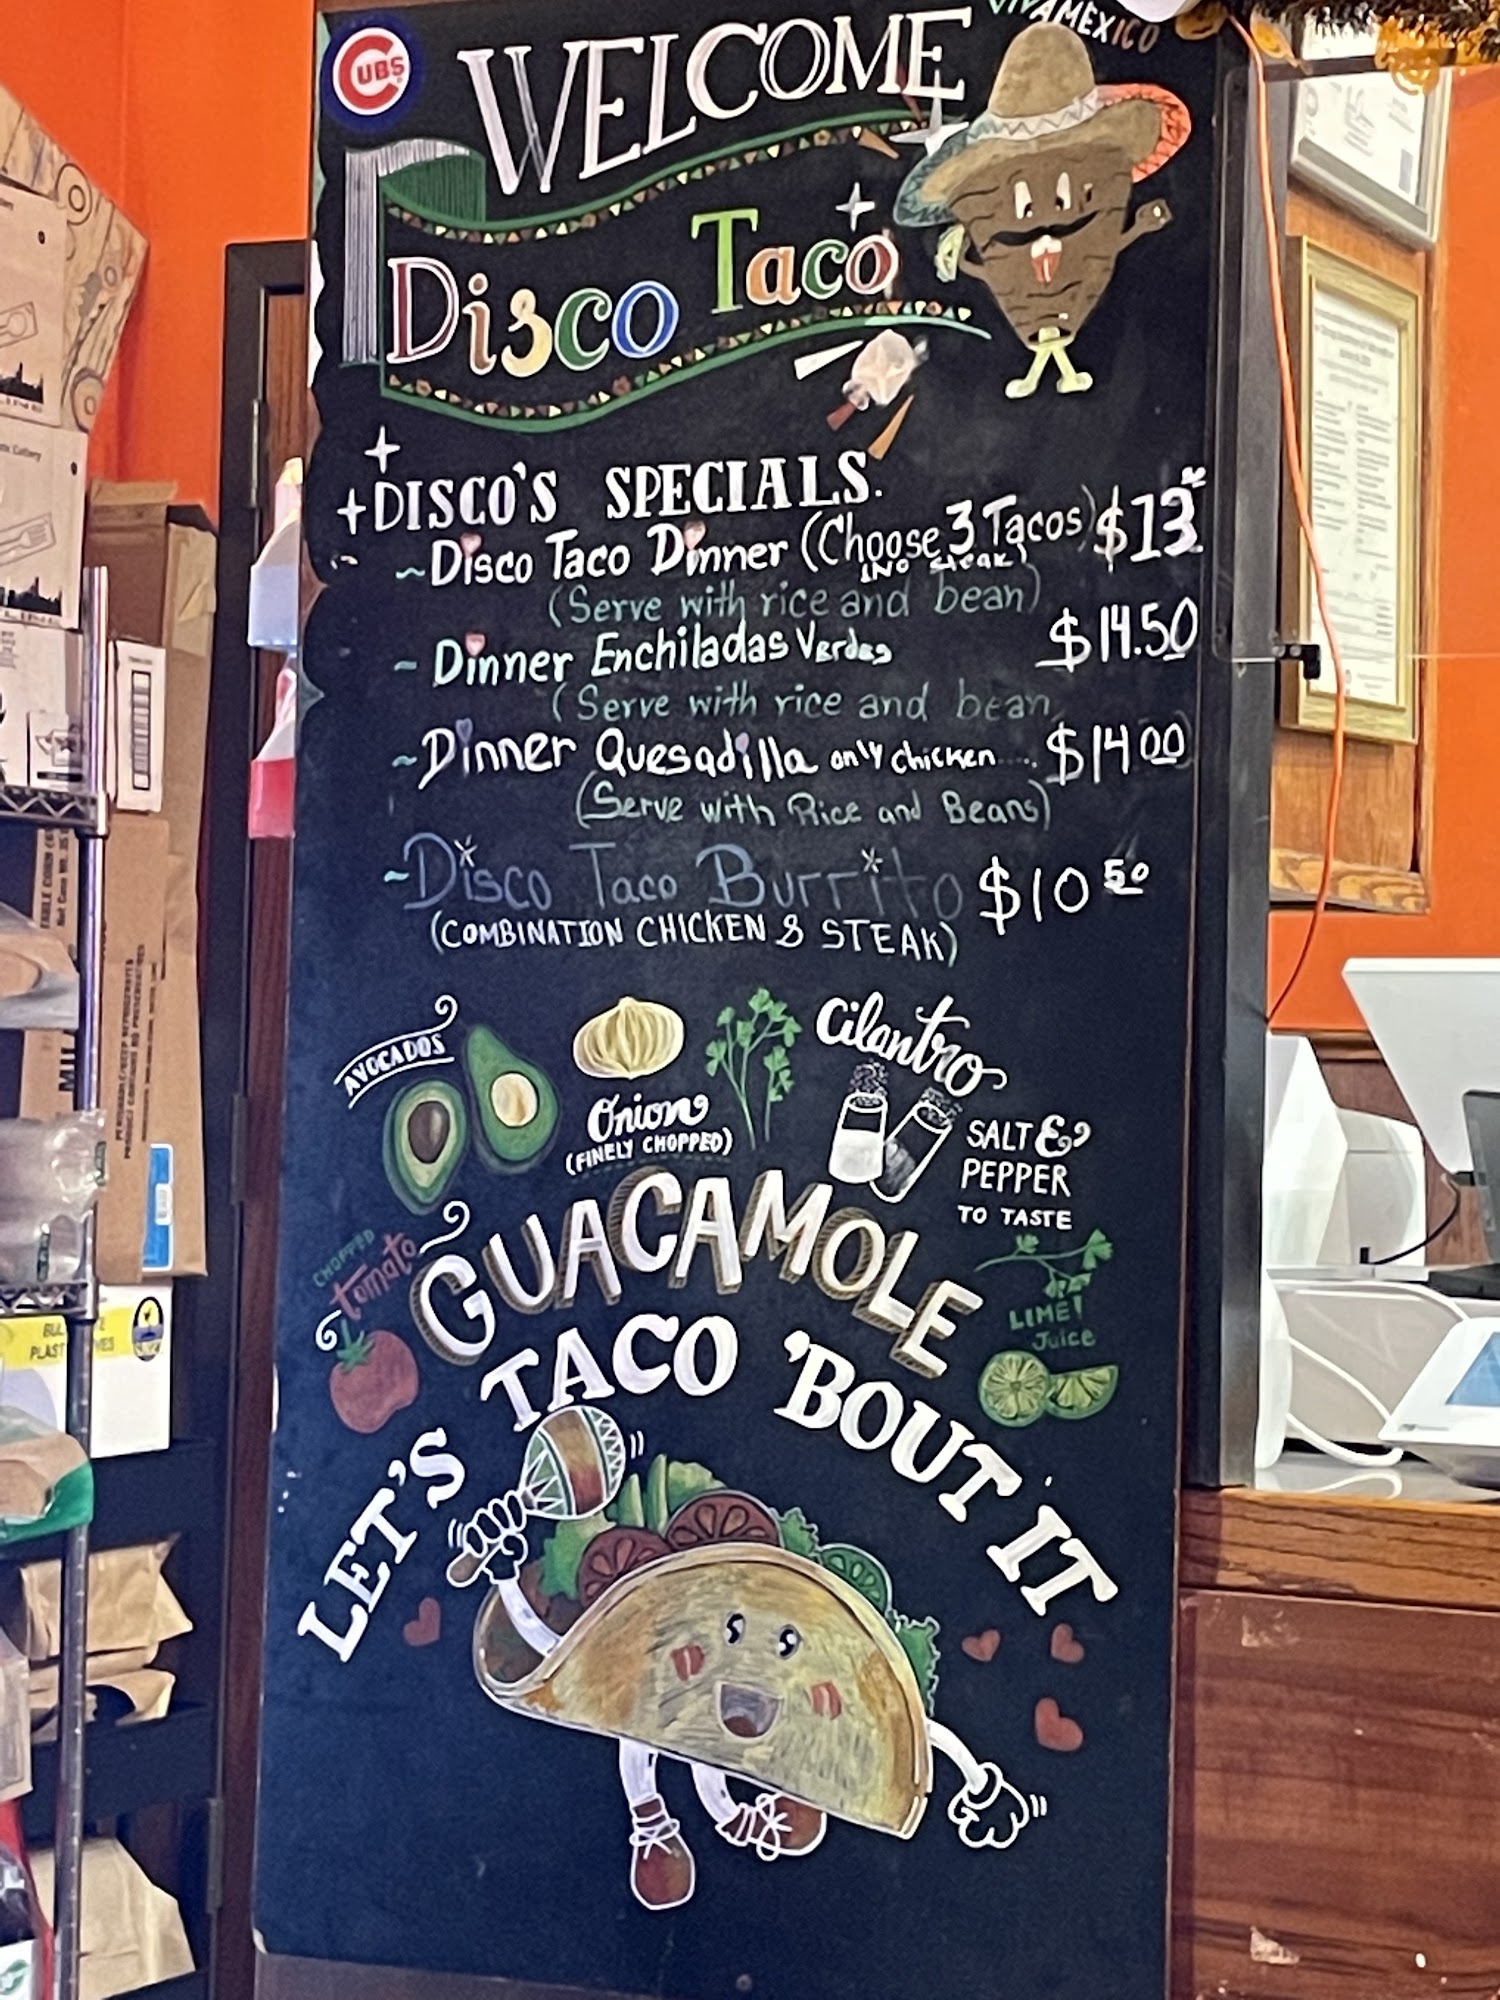 CUBS
VIVA MEXICO
WELCOME
Disco Taco
DISCO'S SPECIALS.
~Disco Taco Dinner (Choose 3 Tacos) $13
(No Steak)
(Serve with rice and bean)
~ Dinner Enchiladas Verdes $14.50
(Serve with rice and bean
~Dinner Quesadilla only chicken.... $14.00
(Serve with Rice and Beans)
~Disco Taco Burrito $10 50
(COMBINATION CHICKEN & STEAK)
AVOCADOS
Onion
(FINELY CHOPPED)
Cilantro
SALT &
PEPPER
TO TASTE
CHOPPED
tomato
GUACAMOLE
LIME!
Juice
LET'S TACO 'BOUT IT